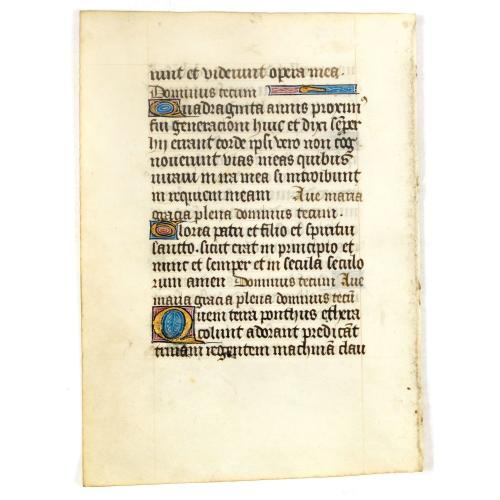 runt et viderunt opera mea.
Dominus tecum
Quadraginta annis proximꝰ
fui generacioni huic et dixi semper
hii errant corde ipsi vero non cog
noverunt vias meas quibus
iuravi in ira mea si introibunt
in requiem meam Ave maria
gracia plena dominus tecum.
Gloria patri et filio et spiritui
sancto. sicut erat in principio et
nunc et semper et in secula seculo
rum amen Dominus tecum Ave
maria gracia plena dominus tecū
Quem terra ponthus ethera
colunt adorant predicāt
trinam regentem machinā clau